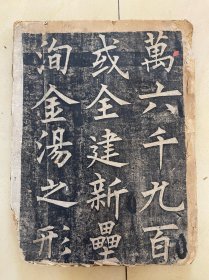 萬六千九百
或全建新壘
洵金湯之形